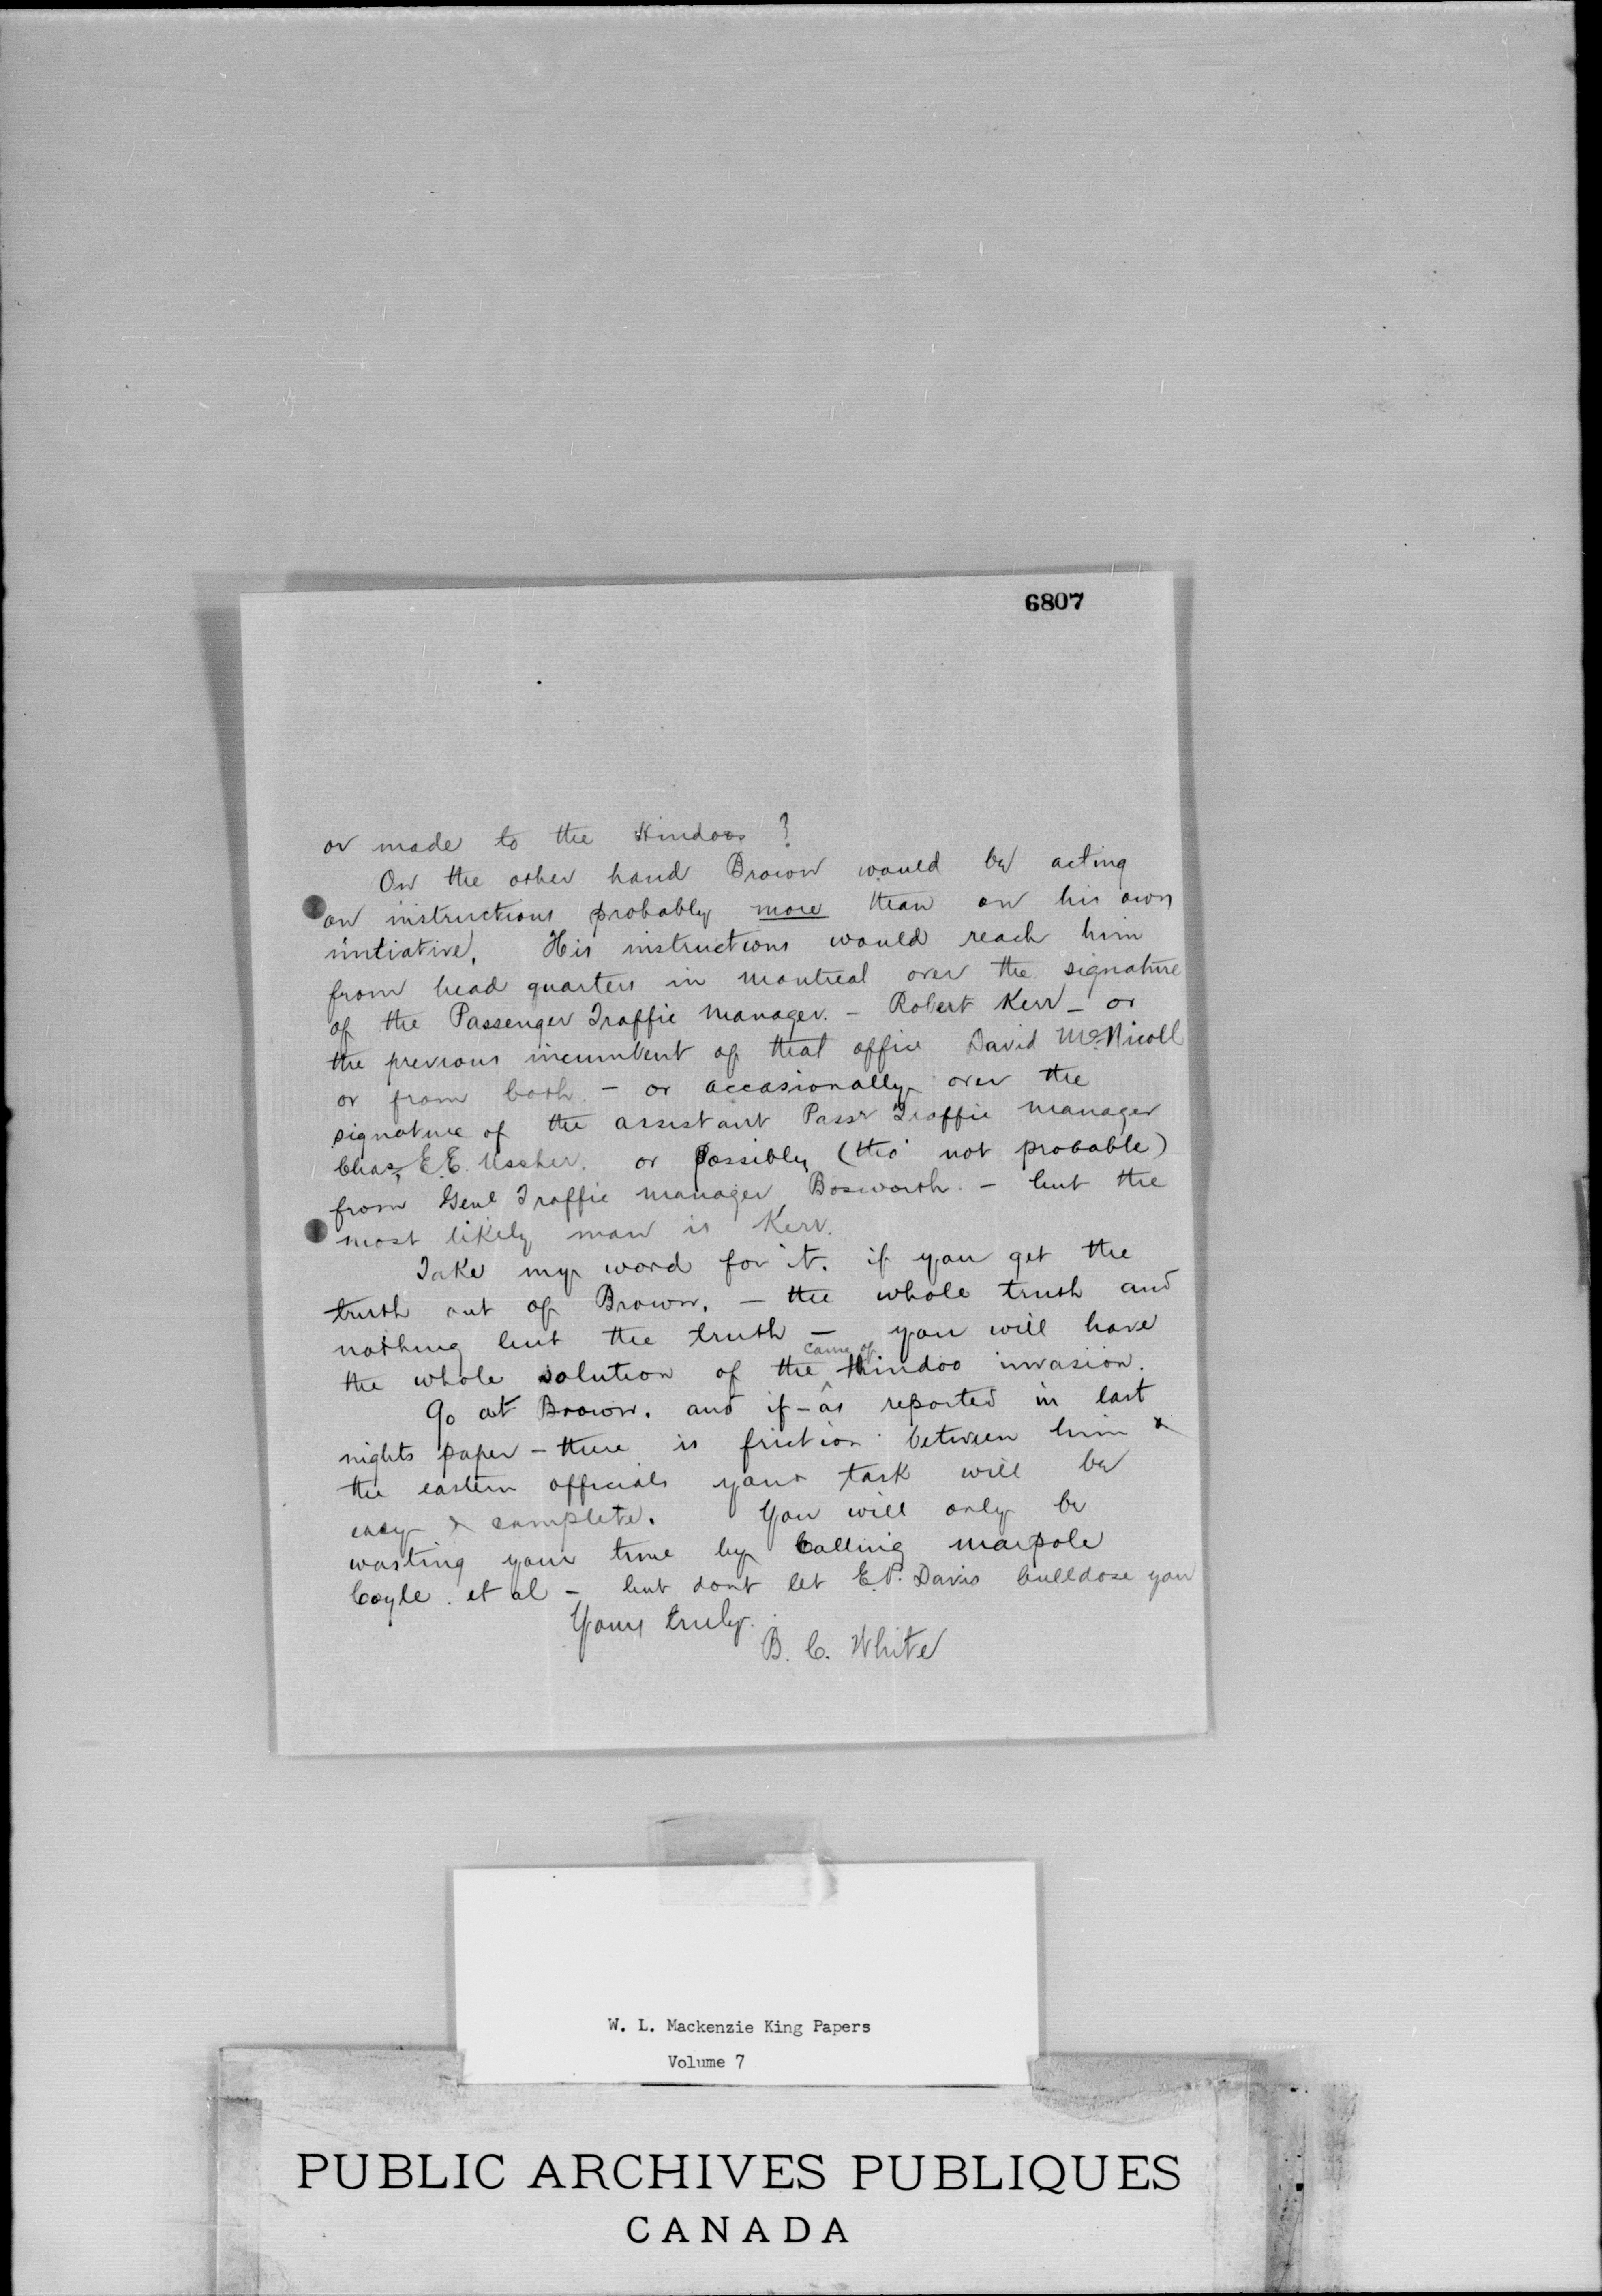 6807
or made to the Hindoos ?
On the other hand Brown would be acting
on instructions probably more than on his own
initiative. His instructions would reach him
from head quarters in Montreal over the signature
of the Passenger Traffic Manager. - Robert Kerr - or
the previous incumbent of that office David McNicoll
or from both. - or occasionally over the
signature of the assistant Passr Traffic Manager
Chas. E.E. Ussher. or possibly (tho' not probable)
from Genl Traffic Manager Bosworth. - but the
most likely man is Kerr.
Take my word for it. if you get the
truth out of Brown. - the whole truth and
nothing but the truth - you will have
the whole solution of the cause of Hindoo invasion.
Go at Brown. and if - as reported in last
nights paper - there is friction between him &
the eastern officials your task will be
easy & complete. You will only be
wasting your time by calling Marpole
Coyle. et al - but dont let E.P. Davis bulldose you
Yours truly.
B. C. White
W. L. Mackenzie King Papers
Volume 7
PUBLIC ARCHIVES PUBLIQUES
CANADA